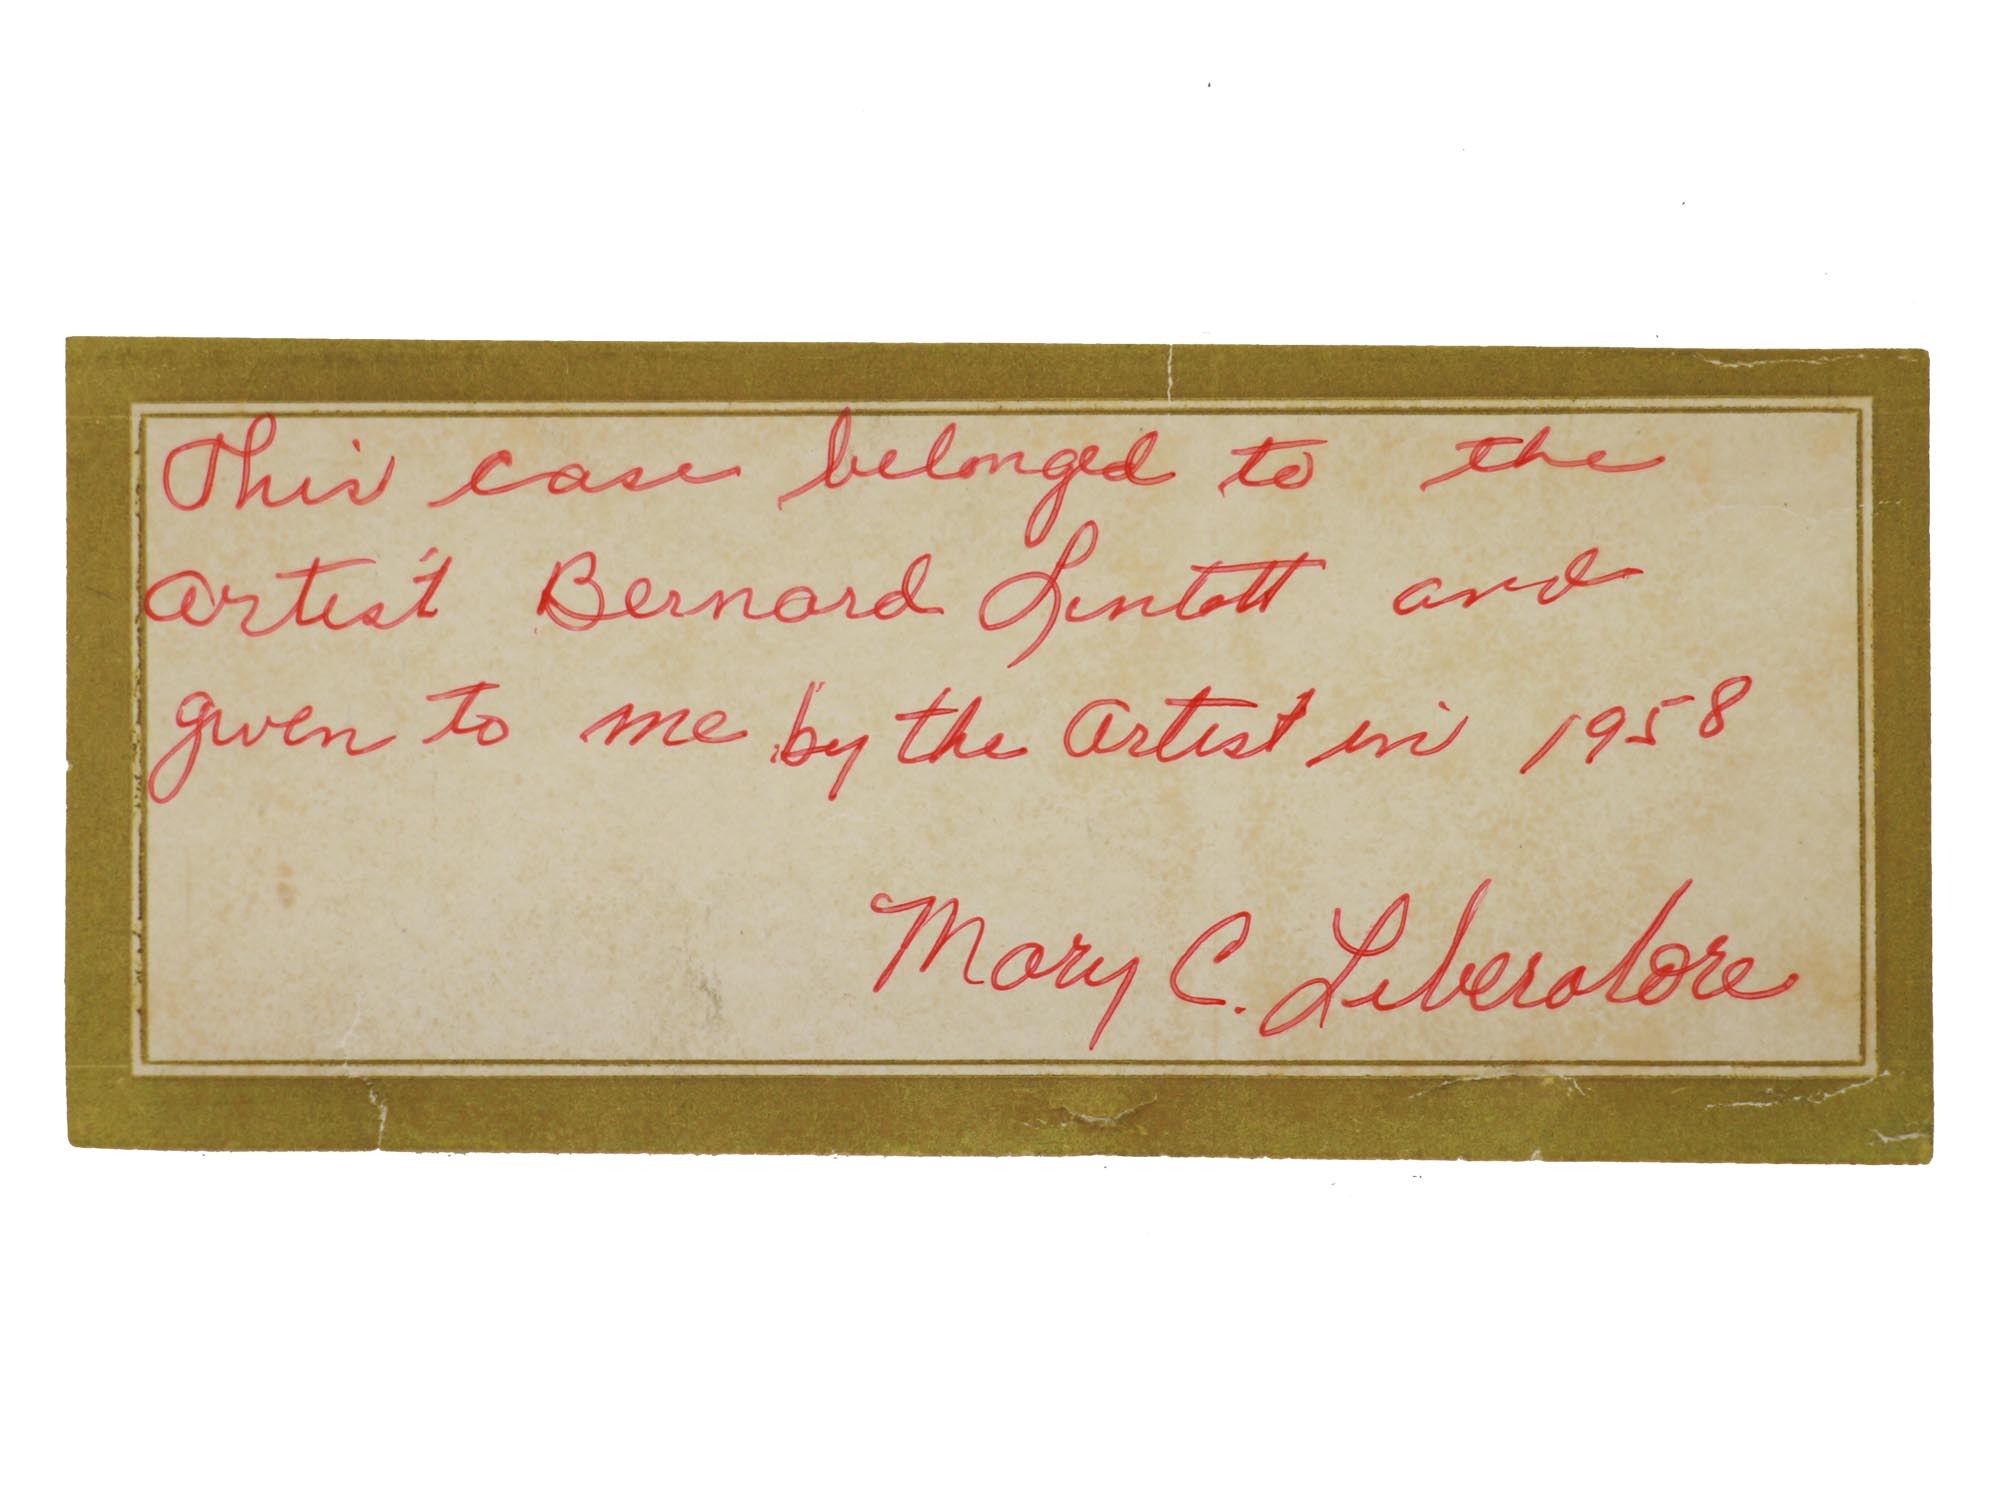 This case belonged to the
artist Bernard Lintott and
given to me by the artist in 1958
Mary C. Liberatore